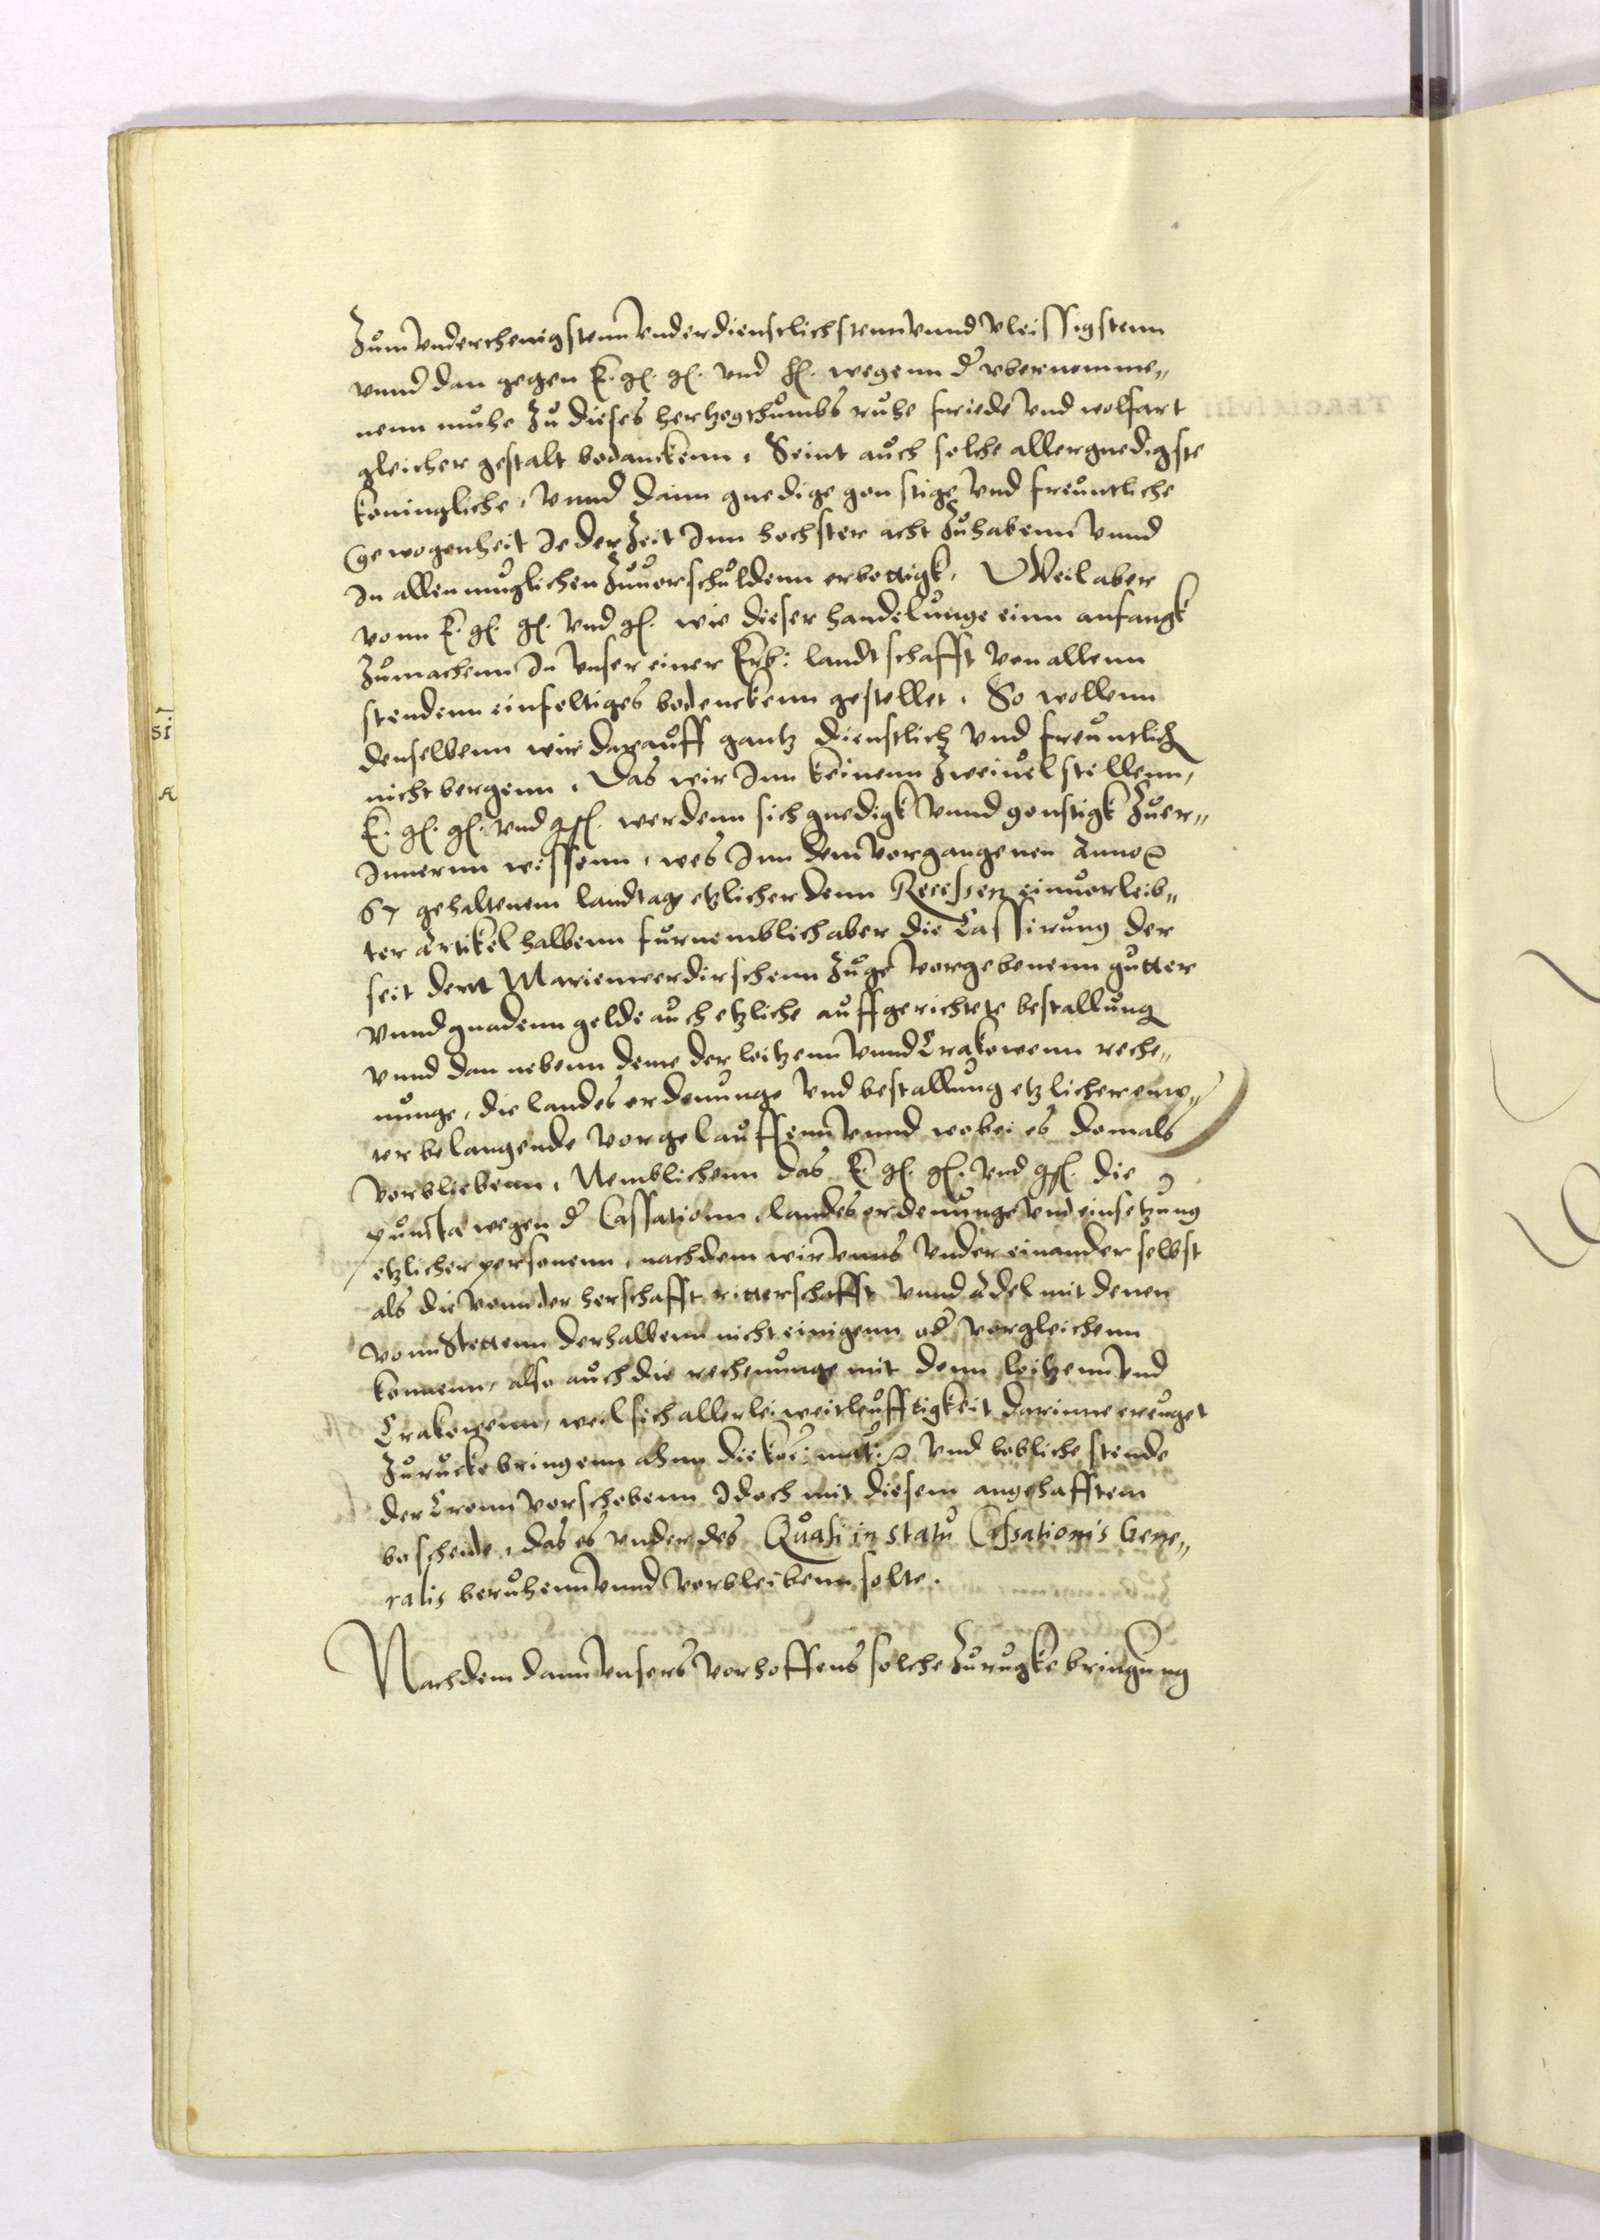 Zum vnderthenigstenn vnderdienstlichstenn vnnd vleissigstenn
vnnd dan gegen E. g. g. vnd h. wegenn der vbernomme„
nenn muhe zu dieses hertzogthumbs ruhe friede vnd wolfart
gleicher gestalt bedanckenn. Seint auch solche allergnedigste
koningliche, vnnd dann gnedige gonstige vnd freuntliche
gewogenheit Jeder Zeit Jnn hochster acht Zuhabenn vnnd
Jn allen muglichen Zuuorschuldenn erbottigk. Weil aber
vonn E. g. g. vnd g. wie dieser handelunge einn anfangk
Zumachenn Jn vnser einer Erb: landtschafft von allenn
stendenn einfeltiges bedenckenn gestellet. So wollenn
denselbenn wir darauff gantz dienstlich vnd freuntlich
nicht bergenn. Das wir Jnn keinenn Zweiuel stellenn,
E. g. g. vnd g. werdenn sich gnedigk vnnd gonstigk Zuer„
Jnnernn wissenn, wes Jnn dem vorgangenen Anno
67 gehaltenem landtage etzlicher denn Recessen einuorleib„
ter Artikel halbenn furnemblich aber die Cassirung der
seit derm Marienwerdirschenn Zuge vorgebenenn gutter
vnnd gnadenn gelde auch etzliche auffgerichtete bestallung
vnnd dan nebenn deme der loitzenn vnnd Crakowenn reche„
nunge, die landes ordenunge vnd bestallung etzlicher emp„
ter belangende vorgelauffenn vnnd wobei es domals
vorbliebenn. Nemblichenn das E. g. g. vnd g. die
puncta wegen der Cassationn, landes ordenunge vnd einsetzung
etzlicher personenn, nachdem wir vnns vnder einander selbst
als die vonn der herschafft ritterschafft vnnd Adel mit denen
vonn Stettenn derhalbenn nicht einigenn oder vorgleichenn
konnenn, also auch die rechenunge mit denn loitzenn vnd
Crakowenn, weil sich allerlei weitleufftigkeit darinne ereuget
Zurucke bringenn ahnn die koe: matt: vnd lobliche stende
der Cronn vorschobenn Jdoch mit diesem angehafftem
bescheide, das es vnder des Quasi in statu Cassationis Gene„
ralis beruhenn vnnd vorbleibenn solte.
Nachdem dann vnsers vorhoffens solche Zurugke bringung